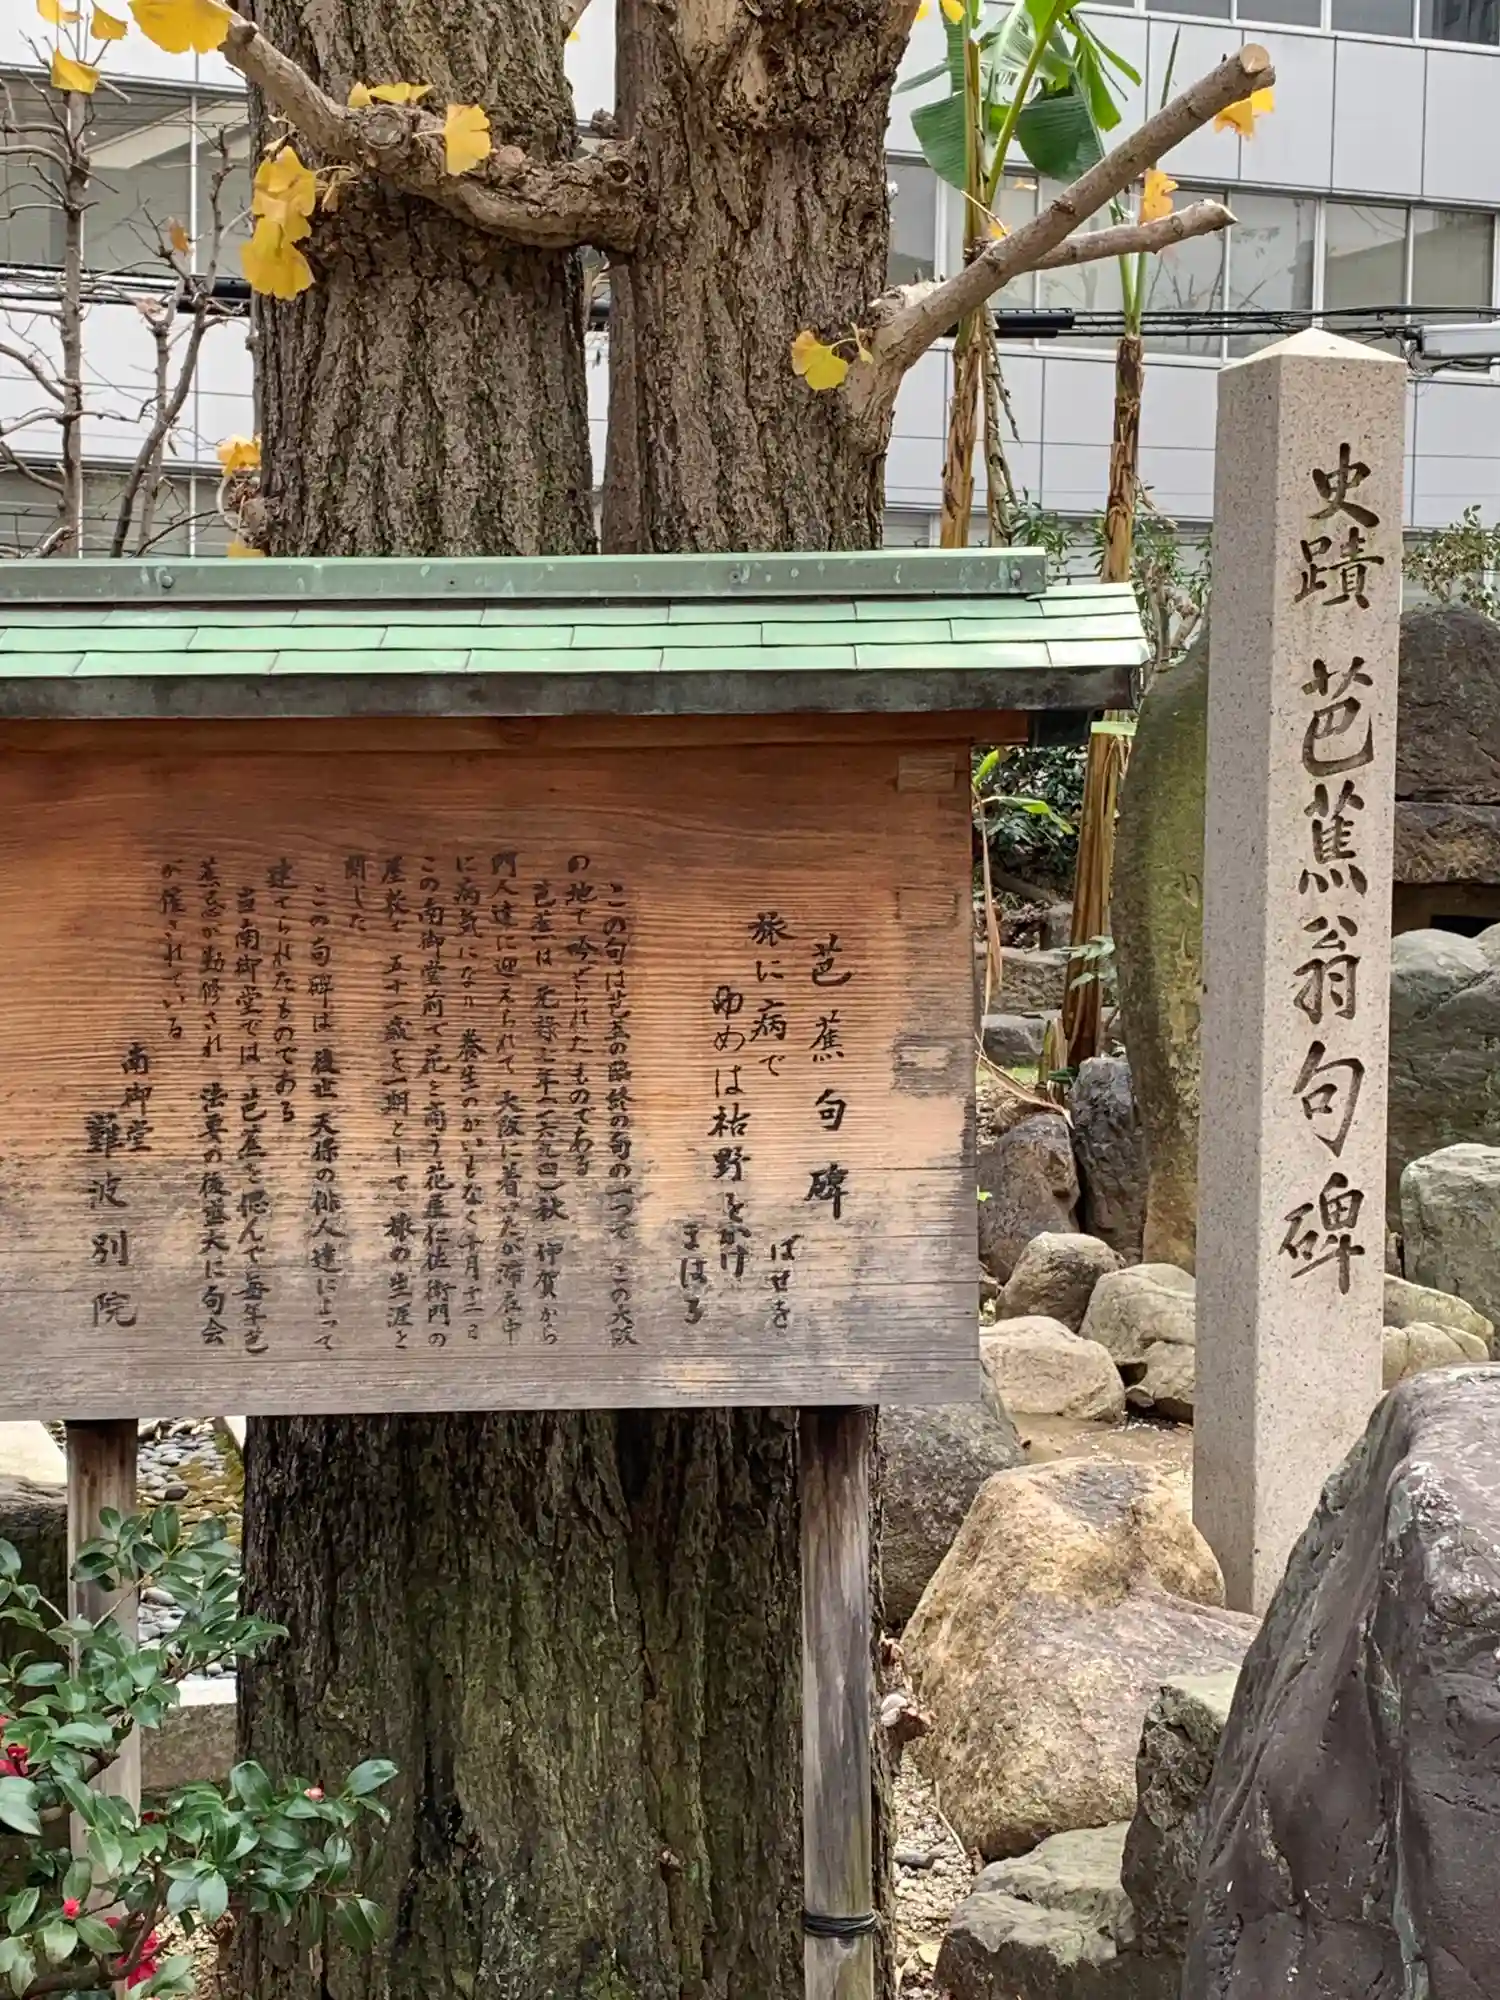 史蹟 芭蕉翁句碑
芭蕉句碑
旅に病で
ゆめは枯野をかけ
まはる
ばせを
この句は芭蕉の臨終の句の一つで この大阪
の地で吟ぜられたものである
芭蕉は 元禄七年(一六九四)秋 伊賀から
門人達に迎えられて 大阪に着いたが滞在中
に病気になり 養生のかいもなく十月十二日
この南御堂前で花を商う花屋仁左衛門の
屋敷で 五十一歳を一期として 旅の生涯を
閉じた
この句碑は 後世 天保の俳人達によって
建てられたものである
当南御堂では 芭蕉を偲んで毎年芭
蕉忌が勤修され 法要の後盛大に句会
が催されている
南御堂
難波別院